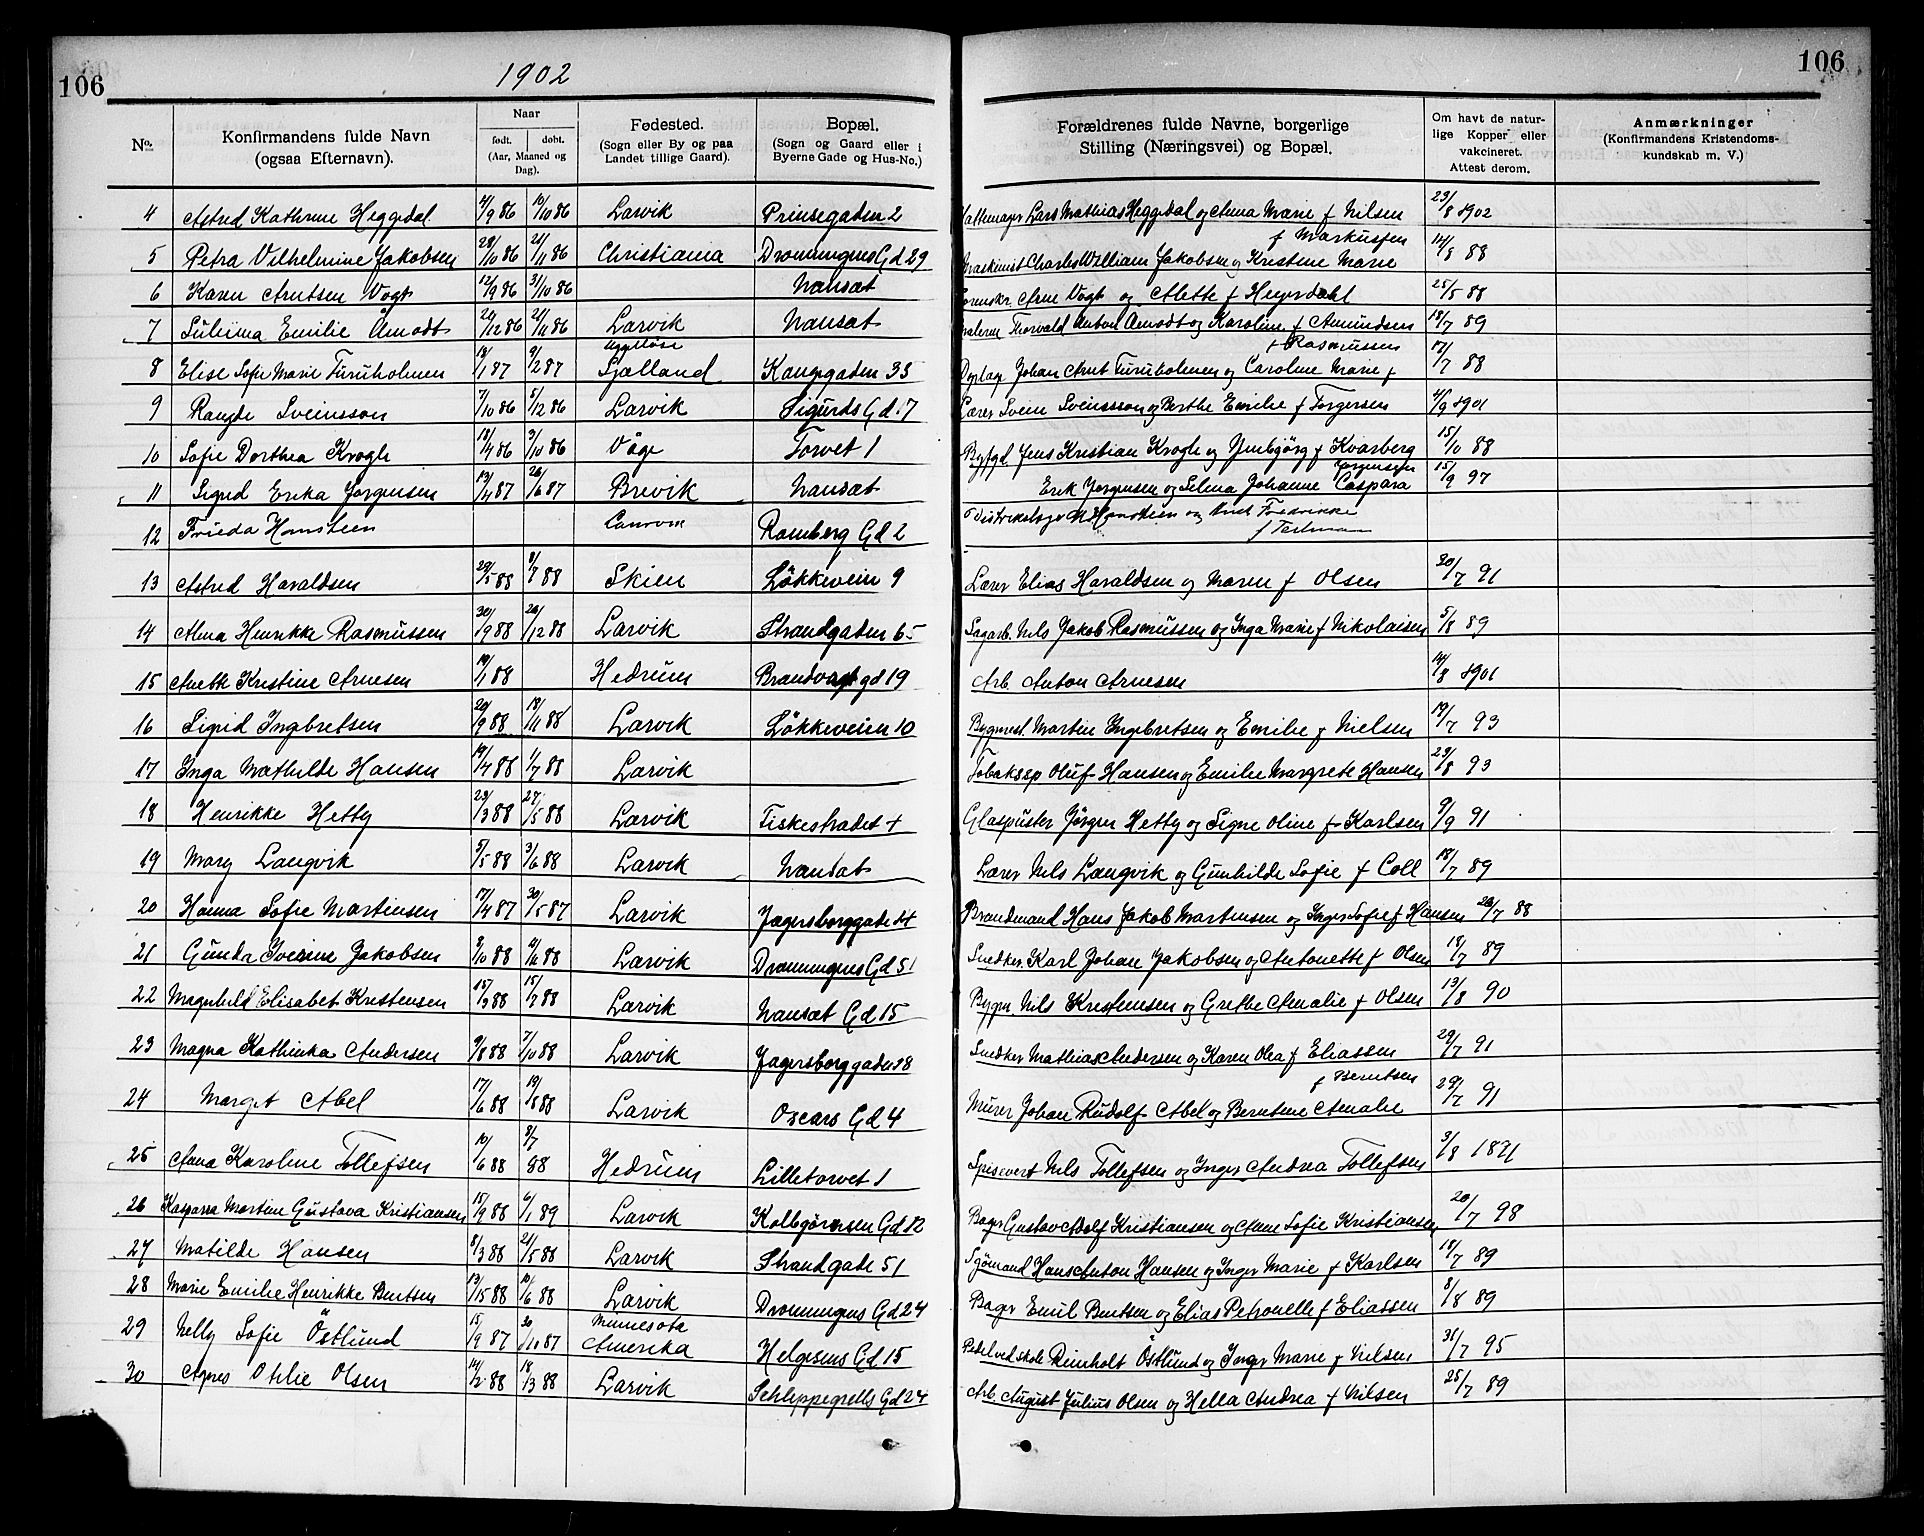 106
1902
106
No.
Konfirmandens fulde Navn
(ogsaa Efternavn).
Naar
født. døbt.
(Aar, Maaned og
Dag).
Fødested.
(Sogn eller By og paa
Landet tillige Gaard).
Bopæl.
(Sogn og Gaard eller i
Byerne Gade og Hus-No.)
Forældrenes fulde Navne, borgerlige
Stilling (Næringsvei) og Bopæl.
Om havt de natur-
lige Kopper eller
vakcineret.
Attest derom.
Anmærkninger
(Konfirmandens Kristendoms-
kundskab m. V.)
4 Astrid Kathrine Heggdal 4/9 86 10/10 86 Larvik Prinsegaden 2 Lars Mathias Heggdal og Anna Marie f Nilsen 23/8 1902
f Markussen
5 Petra Vilhelmine Jakobsen 28/10 86 21/11 86 Christiania Dronningens Gd 29 Maskinist Charles William Jakobsen og Kristine Marie 14/8 88
6 Karen Arntsen Vogt 12/9 86 31/10 86 Nansæt Arne Vogt og Alette f Heyerdahl 25/5 88
7 Emilie Åmodt 86 21/11 86 Larvik Nansæt Thorvald Anton Amodt og Karoline f Amundsen 18/7 89
f Rasmussen
8 Elise Sofie Marie Furuholmen 18/1 87 9/2 87 Sjælland Kongegaden 35 Johan Arnt Furuholmen og Caroline Marie f 17/7 88
9 Sveinsson 7/10 86 5/12 86 Larvik Sigurds Gd 17 Lærer Svein Sveinsson og Berthe Emilie f Torgersen 4/9 1901
10 Sofie Dorthea Krogh 18/4 86 3/10 86 Våge Torvet 1 Jens Kristian Krogh og f Kvarberg 15/10 88
Jørgensen
11 Sigrid Erika Jørgensen 13/4 87 26/6 87 Brevik Nansæt Erik Jørgensen og Selma Johanne Caspara 15/9 97
12 Frieda Homsteen Ramberg Gd 2 Distriktslæge og Fredrikke
13 Astrid Haraldsen 29/5 88 8/7 88 Skien Løkkeveien 9 Lærer Elias Haraldsen og Maren f Olsen 20/7 91
14 Alma Henrikke Rasmussen 30/9 88 26/12 88 Larvik Strandgaden 65 Sagarb. Nils Jakob Rasmussen og Inga Marie f Nikolaisen 5/8 89
15 Anette Kristine Arnesen 19/1 88 Hedrum Brandvagt gd 19 Arb. Anton Arnesen 14/8 1901
16 Sigrid Ingbretsen 20/9 88 18/11 88 Larvik Løkkeveien 10 Bygmest. Martin Ingebretsen og Emilie f Nielsen 19/7 93
17 Inga Mathilde Hansen 19/4 88 1/7 88 Larvik Tobaksp Oluf Hansen og Emilie Margrete Hansen 29/8 93
18 Henrikke Hetty 23/3 88 27/5 88 Larvik Fiskestradet 4 Glaspuster Jørgen Hetty og Signe Oline f Karlsen 9/9 91
19 Mary Langvik 5/5 88 3/6 88 Larvik Nansæt Lærer Nils Langvik og Gunhilde Sofie f Coll 18/7 89
20 Hanna Sofie Martinsen 17/4 87 30/5 87 Larvik Jegersborggade 44 Brandmand Hans Jakob Martinsen og Inger Sofie f Hansen 26/7 88
21 Gunda Iverine Jakobsen 88 88 Larvik Dronningens Gd 51 Snedker. Karl Johan Jakobsen og Antonette f Olsen 18/7 89
22 Magnhild Elisabet Kristensen 15/3 88 15/7 88 Larvik Nansæt Gd 15 Nils Kristensen og Grethe Amalie f Olsen 13/8 90
23 Magna Kathinka Andersen 9/8 88 7/10 88 Larvik Jegersborggaden 18 Snedker Mathias Andersen og Karen Olea f Eliassen 29/7 91
f Berntsen
24 Margit Abel 17/6 88 19/8 88 Larvik Oscars Gd 4 Murer Johan Rudolf Abel og Berntine Amalie 29/7 91
25 Anna Karoline Tollefsen 10/6 88 8/7 88 Hedrum Lilletorvet 1 Spisevert Nils Tollefsen og Inger Andrea Tollefsen 3/8 1891
26 Kaspara Martine Gustava Kristiansen 15/9 88 6/1 89 Larvik Kolbjørnsen Gd 12 Bager Gustav Adolf Kristiansen og Anne Sofie Kristiansen 20/7 98
27 Matilde Hansen 8/3 88 21/5 88 Larvik Strandgade 51 Sjømand Hans Anton Hansen og Inger Marie f Karlsen 18/7 89
28 Marie Emilie Henrikke Bentsen 88 10/6 88 Larvik Dronningens Gd 24 Bager Emil Bentsen og Elias Petronelle f Eliassen 8/8 89
29 Nelly Sofie Østlund 15/9 87 30/10 87 Minnesota Amerika Helgesens Gd 15 Pedel ved skole Reinholt Østlund og Inger Marie f Nilsen 31/7 95
30 Agnes Otilie Olsen 14/2 88 18/3 88 Larvik Schleppegrells Gd 24 Arb. August Julius Olsen og Hella Andrea f Nilsen 25/7 89